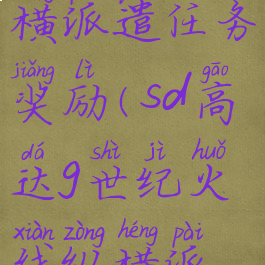 横派遣任务
jiǎng lì gāo
奖励(sd高
dá shì jì huǒ
达9世纪火
xiàn zòng héng pài
线纵横派